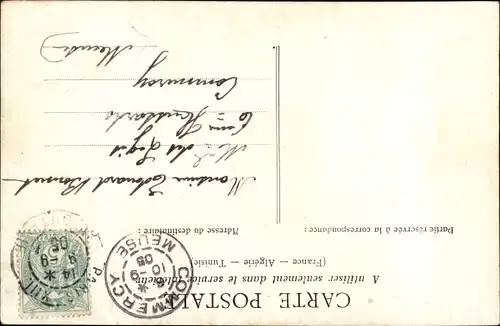 CARTE POSTALE
A utiliser seulement dans le service intérieur
(France — Algérie — Tunisie)
Partie réservée à la correspondance :
Adresse du destinataire :
Monsieur Edouard
des Logis
6
Commercy
Meuse
COMMERCY
10 - 9
05
MEUSE
14
9 - 9
05